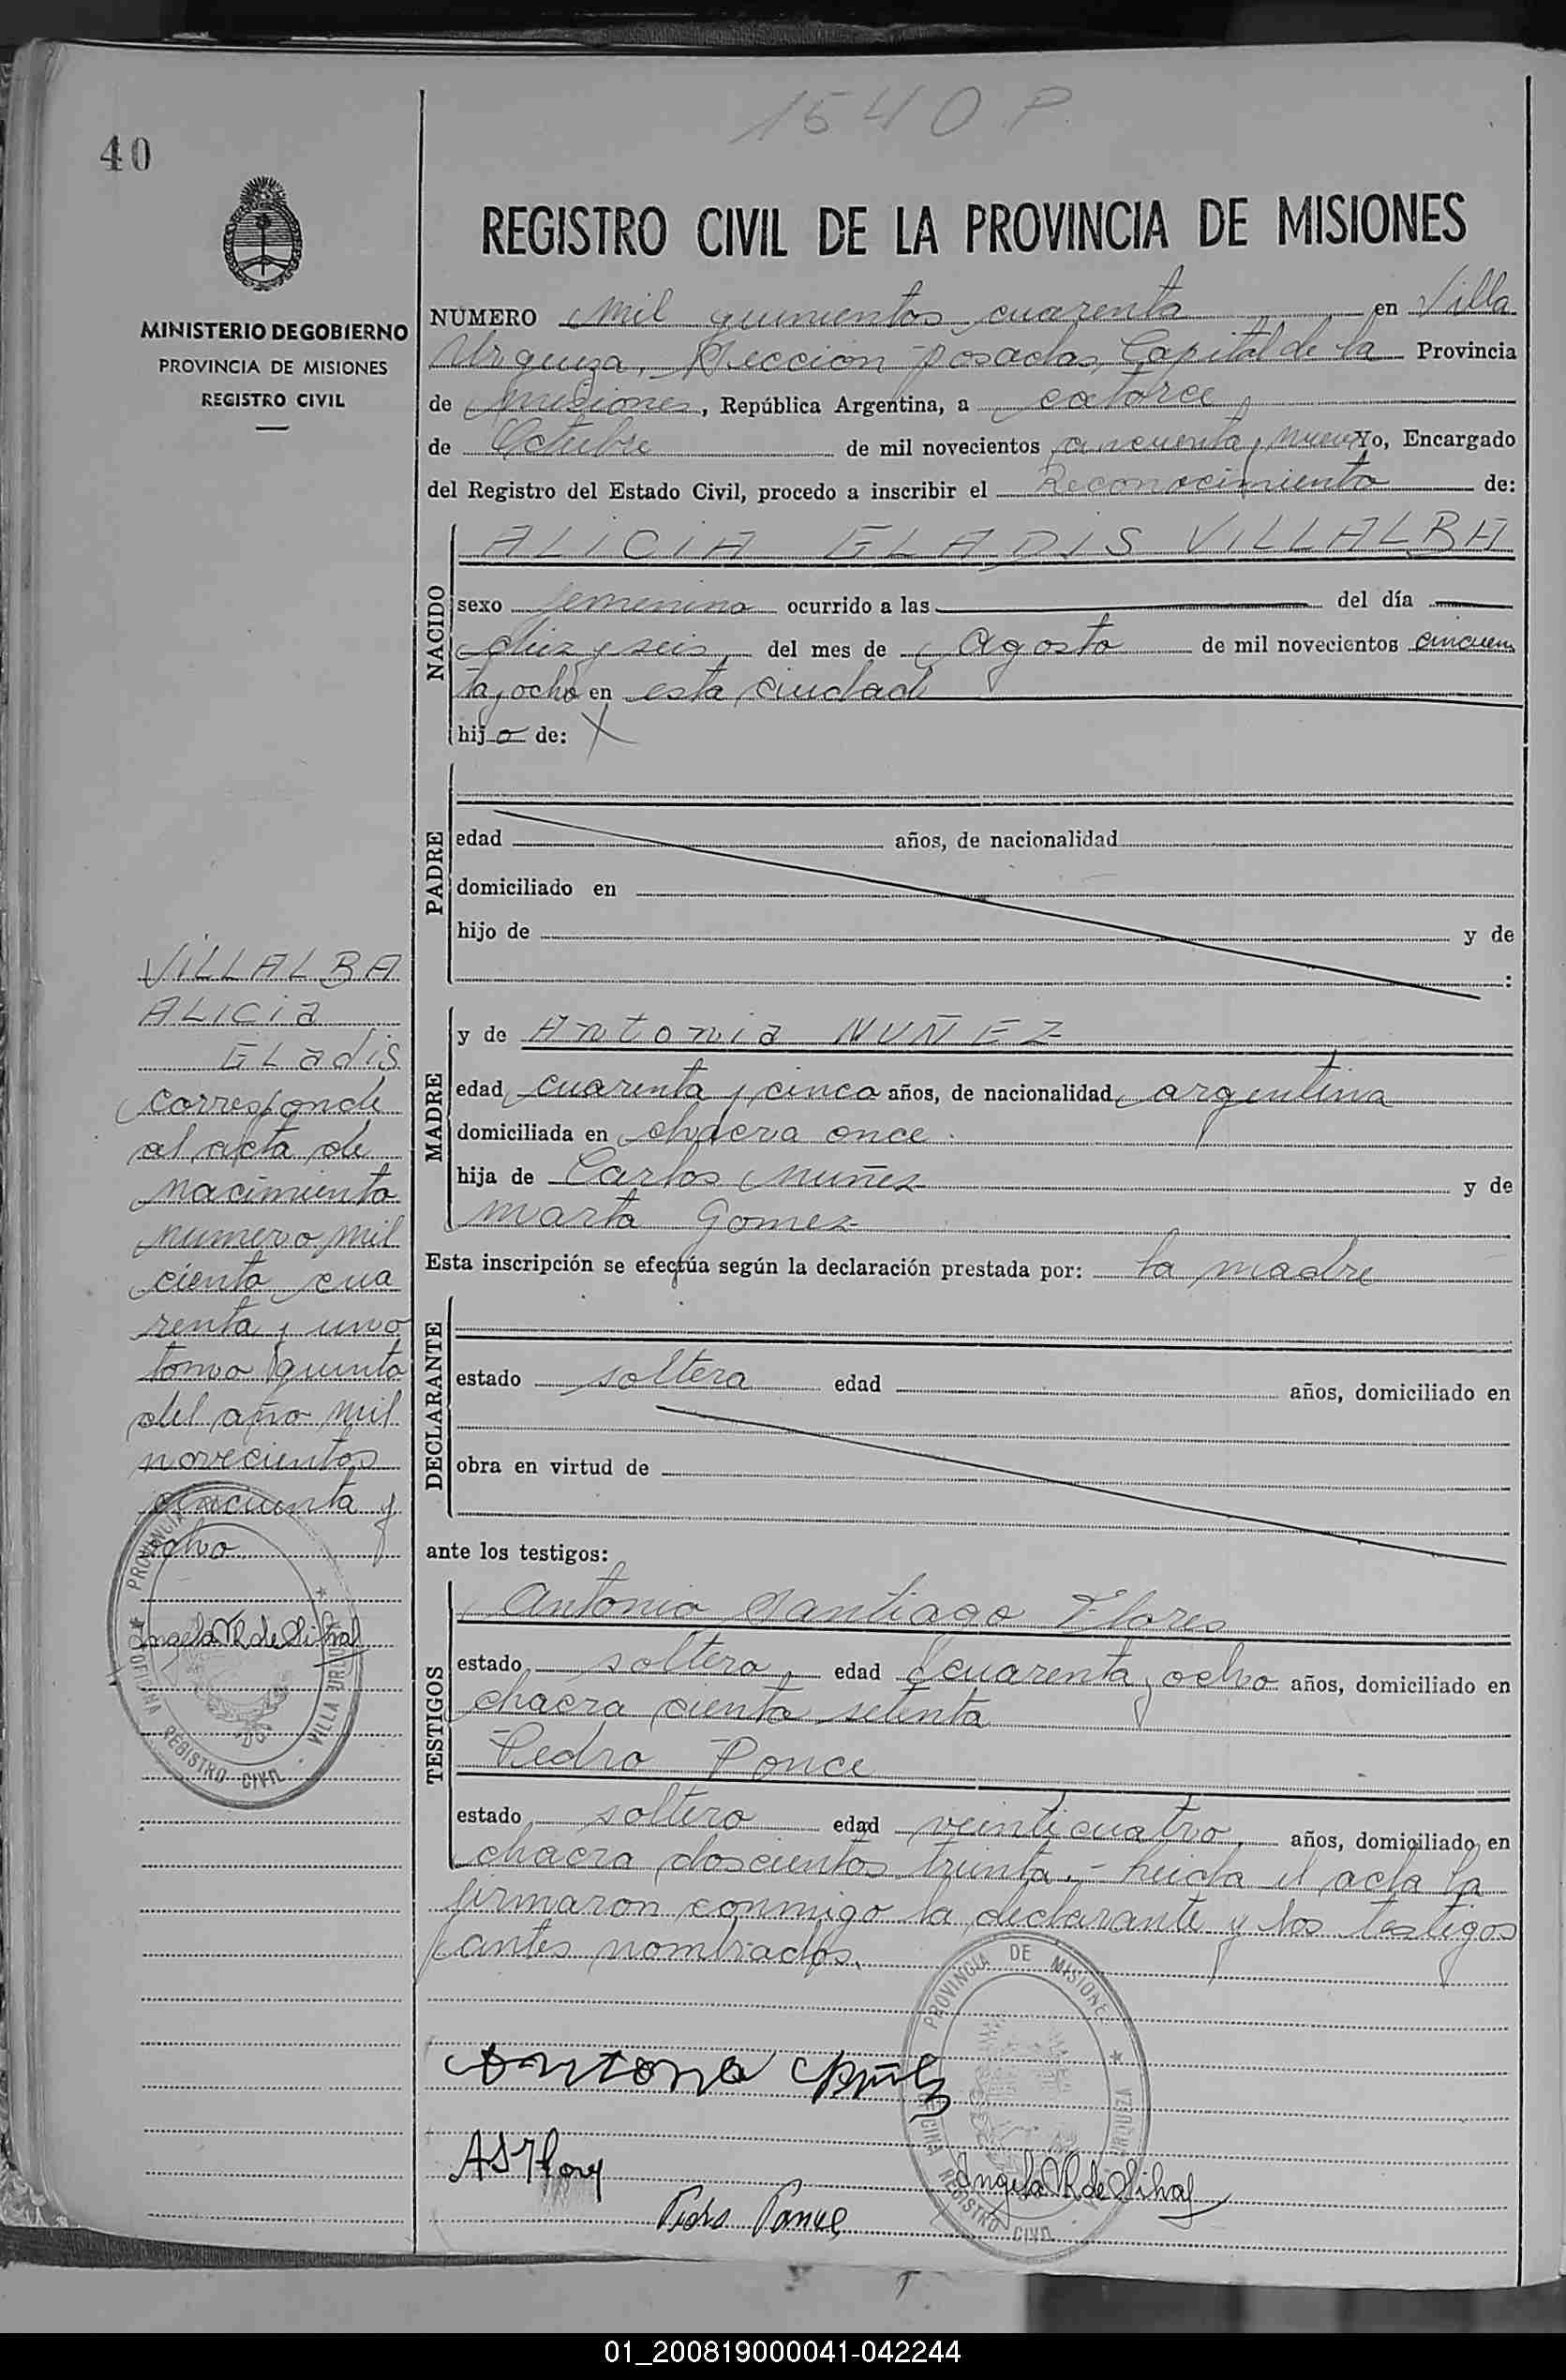 1540 P.
40
REGISTRO CIVIL DE LA PROVINCIA DE MISIONES
MINISTERIO DE GOBIERNO
PROVINCIA DE MISIONES
REGISTRO CIVIL
NUMERO mil quinientos cuarenta en Villa
Urquiza, Sección Posadas, Capital de la Provincia
de Misiones, República Argentina, a catorce
de Octubre de mil novecientos cincuenta y nueve Yo, Encargado
del Registro del Estado Civil, procedo a inscribir el Reconocimiento de:
NACIDO
ALICIA GLADIS VILLALBA
sexo femenino ocurrido a las del día
diez y seis del mes de Agosto de mil novecientos cincuen
ta y ocho en esta ciudad
hija de: X
PADRE
edad años, de nacionalidad
domiciliado en
hijo de y de
:
MADRE
y de Antonia NUÑEZ
edad cuarenta y cinco años, de nacionalidad argentina
domiciliada en chacra once.
hija de Carlos Nuñez y de
Marta Gomez
Esta inscripción se efectúa según la declaración prestada por: la madre
DECLARANTE
estado soltera edad años, domiciliado en
obra en virtud de
ante los testigos:
TESTIGOS
Antonio Santiago Flores
estado soltero, edad cuarenta y ocho años, domiciliado en
chacra ciento setenta
Pedro Ponce
estado soltero edad veinticuatro, años, domiciliado en
chacra doscientos treinta.- leida el acta la
firmaron conmigo la declarante y los testigos
antes nombrados.
VILLALBA
ALICIA
GLadis
corresponde
al acta de
nacimiento
numero mil
ciento cua
renta y uno
tomo quinto
del año mil
novecientos
cincuenta y
ocho
Angela R de Silva
PROVINCIA
OFICINA REGISTRO CIVIL
VILLA URQUIZA
PROVINCIA DE MISIONES
OFICINA REGISTRO CIVIL
URQUIZA
Antonia Nuñez
ASFlores
Pedro Ponce
Angela R de Silva
01_200819000041-042244